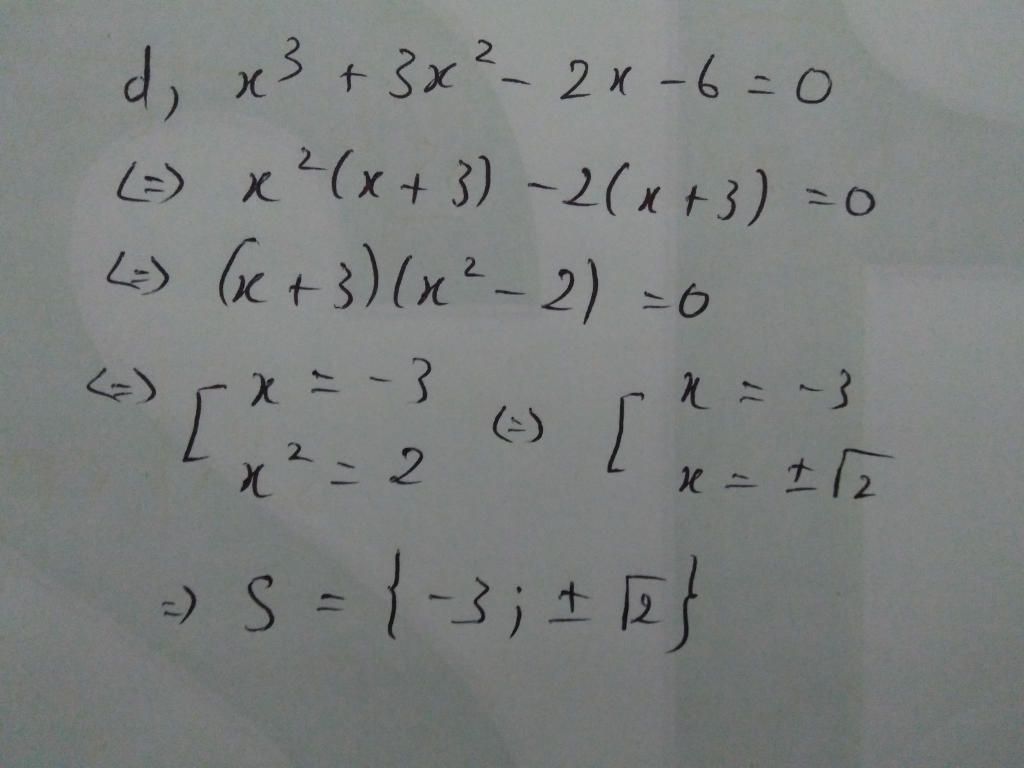 d, x³ + 3x² - 2x - 6 = 0
(=) x²(x + 3) - 2(x + 3) = 0
(=) (x + 3)(x² - 2) = 0
(=) [ x = -3 (=) [ x = -3
x² = 2 x = ±√2
=) S = {-3; ±√2}